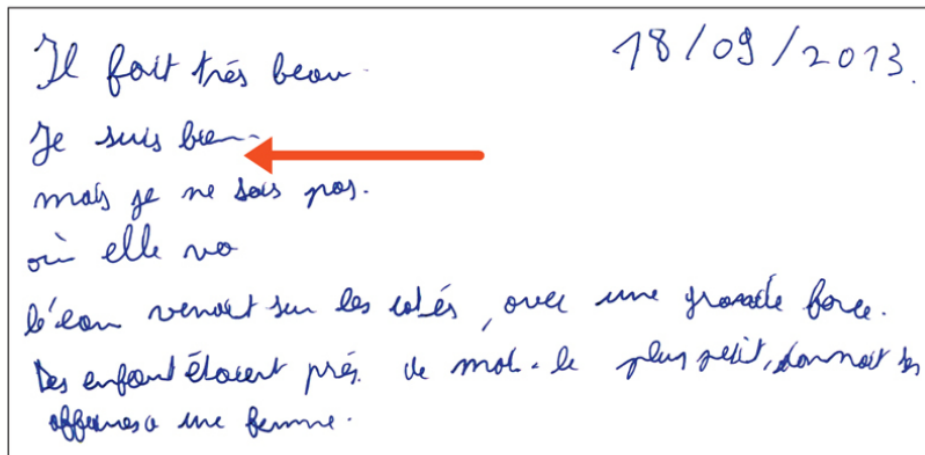 Il fait très beau.
18/09/2013.
Je suis bien.
mais je ne sais pas.
où elle va
l'eau venait sur les cotés, avec une grande force.
Des enfant étaient près de moi. le plus petit, donnait ses
affaires a une femme.